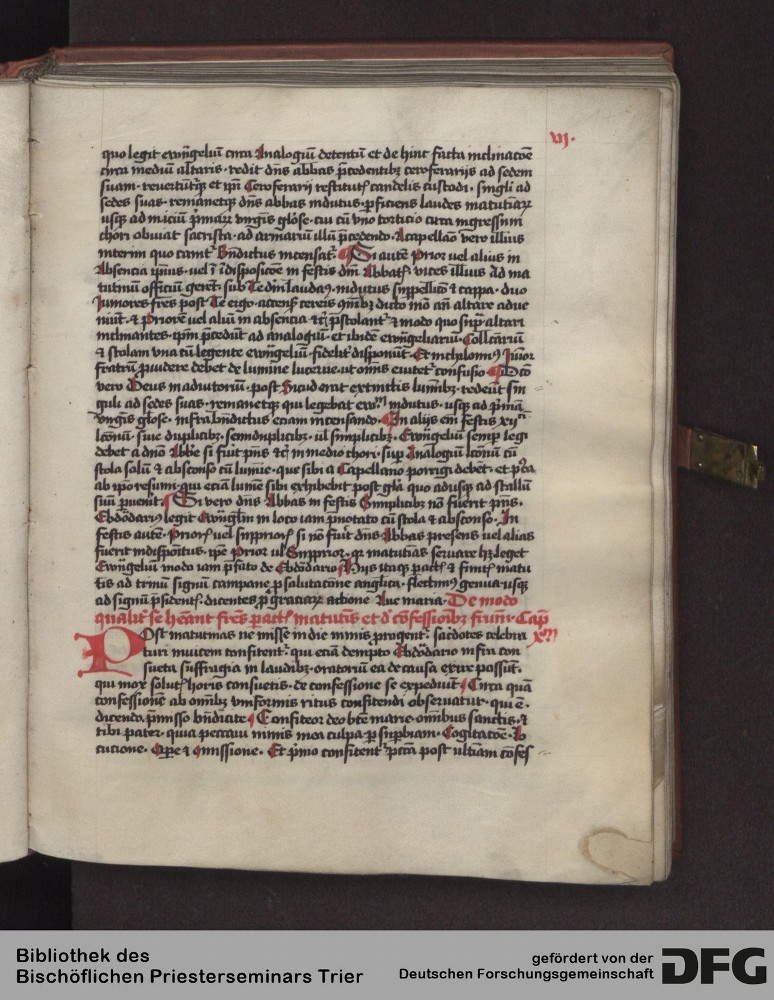 vij.
quo legit ewangeliū circa Analogiū detentū et de hinc facta inclinacōe
circa mediū altaris · redit dn̄s abbas p̄cedentibꝫ ceroferarijs ad sedem
suam · reuertūtqꝫ et ip̄i Ceroferarij restitutꝭ candelis custodi · singli ad
sedes suas · remanetqꝫ dn̄s abbas indutus · p̄ficiens laudes matutinaꝝ
usqꝫ ad iniciū p̄maꝝ virginis gl̄ose · cui cū vno torticio circa ingressum
chori obuiat sacrista · ad armariū illū p̄cedendo · A capellāo vero illius
interim quo canit᷑ Bn̄dictus incensat᷑ · Si autē Prior vel alius in
Absencia ip̄ius · vel ī īdisposicōe in festis dn̄i Abbatꝭ vices illius Ad ma
tutinū officiū geret · sub Te dm̄ laudaꝰ · indutus sup̄pellicō & cappa · duo
Juniores fr̄es post Te ergo · accensꝭ cereis om̄ibꝫ dicto mō an̄ altare adue
niūt · & Priorē vel aliū in absencia & p̄stolant᷑ & modo quo sup̄ altari
inclinantes · ip̄m p̄cedūt ad analogiū · et ibidē ewangeliariū · Collectariū
& stolam vna cū legente ewangeliū · fidelit᷑ disponūt · Et in ... Junior
fratrū p̄uidere debet de lumine lucerne ut om̄is euitet᷑ confusio · Dcō
vero Deus in adiutoriū · post Sicud erat extinctis lumībꝫ · redeūt sin
guli ad sedes suas · remanetqꝫ qui legebat ew̄m indutus · usqꝫ ad p̄maꝫ
virginis gl̄ose · infra bn̄dictus eciam incensando · In alijs em̄ festis xij
lc̄onū · siue duplicibꝫ · semiduplicibꝫ · ul simplicibꝫ · Ewangeliū semp̄ legi
debet a dn̄o Abbe si fuit p̄ns & in medio chori · sup̄ Analogiū lc̄onū cū
stola solū & absconso cū lumīe · que sibi a Capellano porrigi debet · et p̄ea
ab ip̄o resumi · qui eciā lumē sibi exhibebit post gl̄a quo adusqꝫ ad stallū
suū p̄uenit · Si vero dn̄s Abbas in festis Simplicibꝫ nō fuerit p̄ns ·
Ebdōdariꝰ legit Ewangeliū in loco iam p̄notato cū stola & absconso · In
festis autē · Priorꝭ vel supp̄riorꝭ si nō fuit dn̄s Abbas presens vel alias
fuerit indispōitus · ip̄e Prior ul Supp̄rior · qꝛ matutinas seruare hꝫ leget
Ewangeliū modo iam p̄fato de Ebdōdario · Hijs itaqꝫ pactꝭ & finitꝭ matu
tīs ad trinū signū campane p̄ salutacōne anglica · flectimꝰ genua · usqꝫ
ad signū p̄sidentꝭ · dicentes p̄ graciaꝝ actione Aue maria · De modo
qualit᷑ se hēant fr̄es pactꝭ matutīs et d' cōfessionibꝫ fr̄um · Cap̄
xiij
Post matutinas ne misse in die nimis p̄rogent᷑ · sac̄dotes celebra
turi inuicem confitent᷑ · qui eciā dempto Ebdōdario infra con
sueta suffragia in laudibꝫ · oratoriū ea de causa exire possūt ·
qui mox solutꝭ horis consuetis · de confessione se expediūt · Circa quā
confessionē ab om̄ibꝫ vniformis ritus confitendi obseruatur · qui ē ·
dicendo, p̄misso bn̄dicite · Confiteor deo btē marie · omībus sanctis · &
tibi pater · quia peccaui nimis mea culpa · p̄ sup̄biam · Cogitatōe · lo
cutione · Ope & omissione · Et p̄mo confitent᷑ pctā post ultīam cōfes
Bibliothek des
Bischöflichen Priesterseminars Trier
gefördert von der
Deutschen Forschungsgemeinschaft
DFG